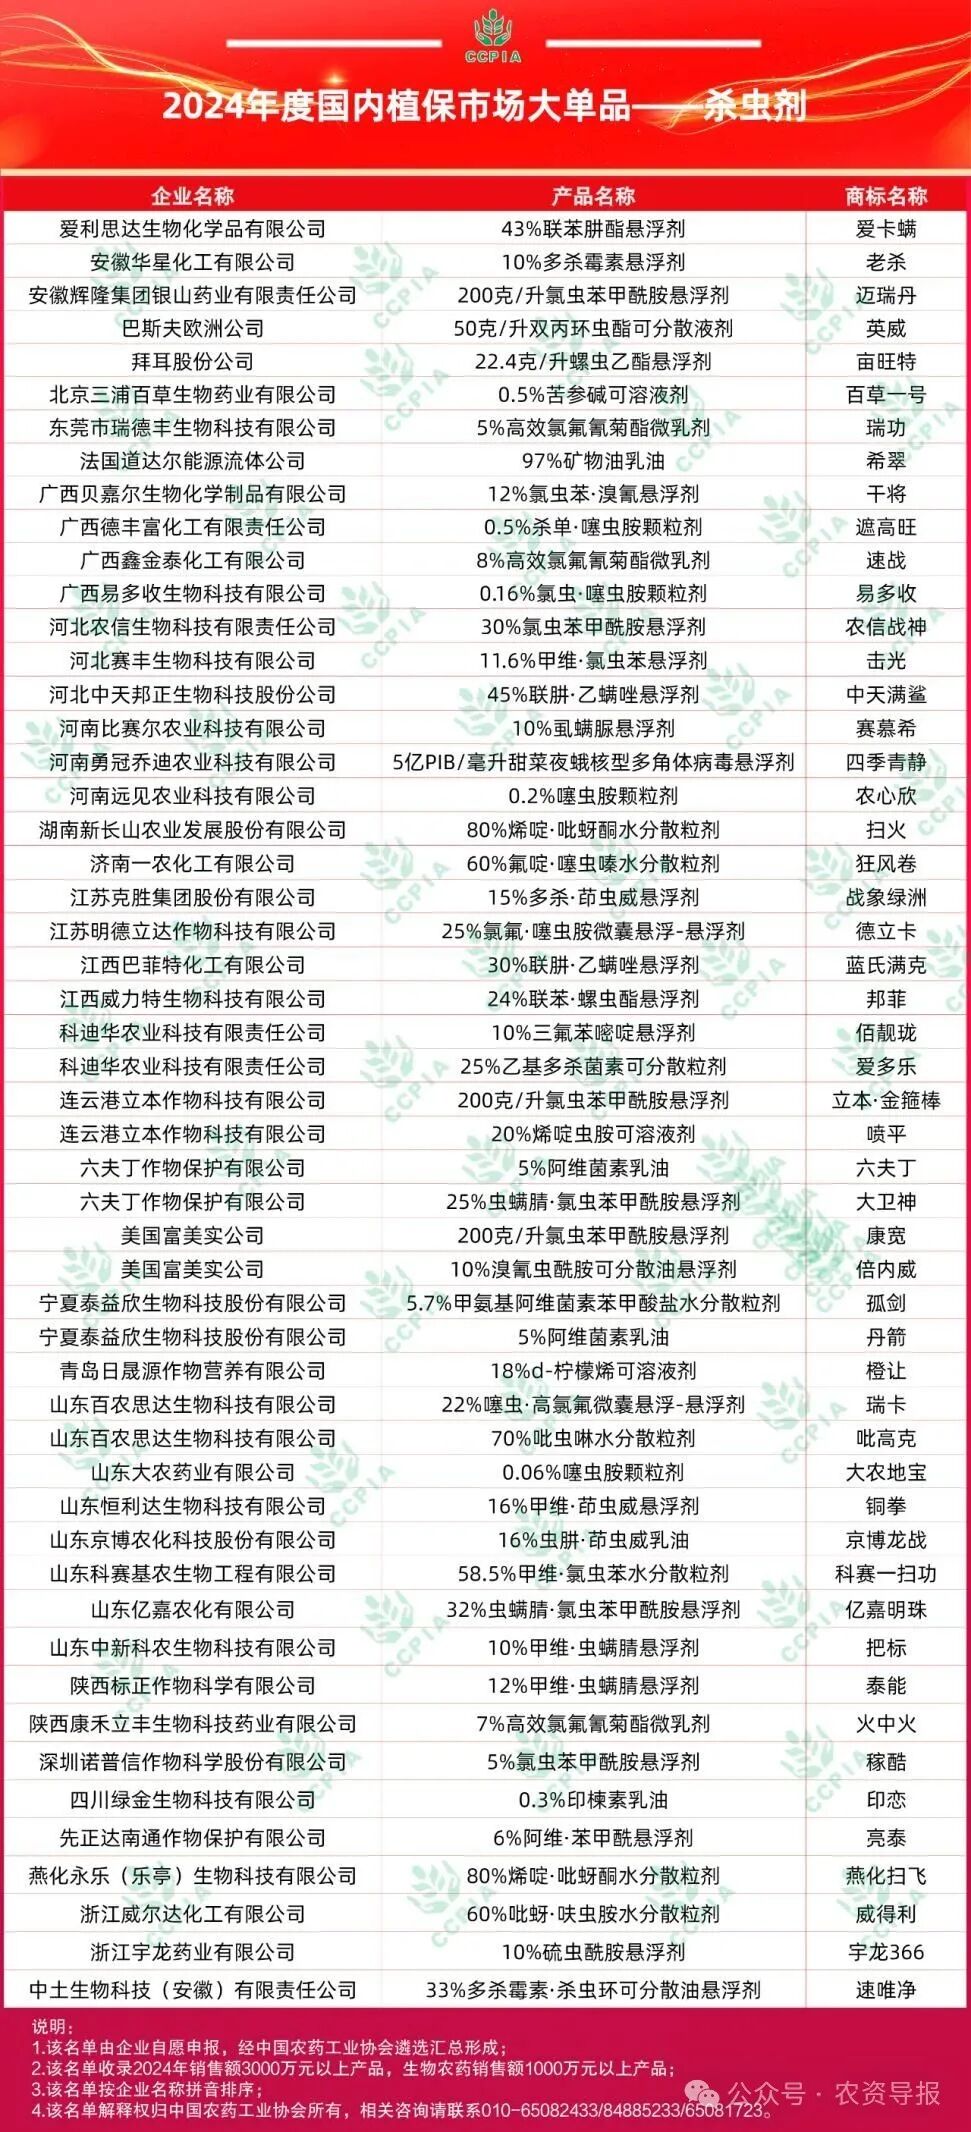 CCPIA
2024年度国内植保市场大单品——杀虫剂
企业名称 产品名称 商标名称
爱利思达生物化学品有限公司 43%联苯肼酯悬浮剂 爱卡螨
安徽华星化工有限公司 10%多杀霉素悬浮剂 老杀
安徽辉隆集团银山药业有限责任公司 200克/升氯虫苯甲酰胺悬浮剂 迈瑞丹
巴斯夫欧洲公司 50克/升双丙环虫酯可分散液剂 英威
拜耳股份公司 22.4克/升螺虫乙酯悬浮剂 亩旺特
北京三浦百草生物药业有限公司 0.5%苦参碱可溶液剂 百草一号
东莞市瑞德丰生物科技有限公司 5%高效氯氟氰菊酯微乳剂 瑞功
法国道达尔能源流体公司 97%矿物油乳油 希翠
广西贝嘉尔生物化学制品有限公司 12%氯虫苯·溴氰悬浮剂 干将
广西德丰富化工有限责任公司 0.5%杀单·噻虫胺颗粒剂 遮高旺
广西鑫金泰化工有限公司 8%高效氯氟氰菊酯微乳剂 速战
广西易多收生物科技有限公司 0.16%氯虫·噻虫胺颗粒剂 易多收
河北农信生物科技有限责任公司 30%氯虫苯甲酰胺悬浮剂 农信战神
河北赛丰生物科技有限公司 11.6%甲维·氯虫苯悬浮剂 击光
河北中天邦正生物科技股份公司 45%联肼·乙螨唑悬浮剂 中天满鲨
河南比赛尔农业科技有限公司 10%虱螨脲悬浮剂 赛慕希
河南勇冠乔迪农业科技有限公司 5亿PIB/毫升甜菜夜蛾核型多角体病毒悬浮剂 四季青静
河南远见农业科技有限公司 0.2%噻虫胺颗粒剂 农心欣
湖南新长山农业发展股份有限公司 80%烯啶·吡蚜酮水分散粒剂 扫火
济南一农化工有限公司 60%氟啶·噻虫嗪水分散粒剂 狂风卷
江苏克胜集团股份有限公司 15%多杀·茚虫威悬浮剂 战象绿洲
江苏明德立达作物科技有限公司 25%氯氟·噻虫胺微囊悬浮-悬浮剂 德立卡
江西巴菲特化工有限公司 30%联肼·乙螨唑悬浮剂 蓝氏满克
江西威力特生物科技有限公司 24%联苯·螺虫酯悬浮剂 邦菲
科迪华农业科技有限责任公司 10%三氟苯嘧啶悬浮剂 佰靓珑
科迪华农业科技有限责任公司 25%乙基多杀菌素可分散粒剂 爱多乐
连云港立本作物科技有限公司 200克/升氯虫苯甲酰胺悬浮剂 立本·金箍棒
连云港立本作物科技有限公司 20%烯啶虫胺可溶液剂 喷平
六夫丁作物保护有限公司 5%阿维菌素乳油 六夫丁
六夫丁作物保护有限公司 25%虫螨腈·氯虫苯甲酰胺悬浮剂 大卫神
美国富美实公司 200克/升氯虫苯甲酰胺悬浮剂 康宽
美国富美实公司 10%溴氰虫酰胺可分散油悬浮剂 倍内威
宁夏泰益欣生物科技股份有限公司 5.7%甲氨基阿维菌素苯甲酸盐水分散粒剂 孤剑
宁夏泰益欣生物科技股份有限公司 5%阿维菌素乳油 丹箭
青岛日晟源作物营养有限公司 18%d-柠檬烯可溶液剂 橙让
山东百农思达生物科技有限公司 22%噻虫·高氯氟微囊悬浮-悬浮剂 瑞卡
山东百农思达生物科技有限公司 70%吡虫啉水分散粒剂 吡高克
山东大农药业有限公司 0.06%噻虫胺颗粒剂 大农地宝
山东恒利达生物科技有限公司 16%甲维·茚虫威悬浮剂 铜拳
山东京博农化科技股份有限公司 16%虫肼·茚虫威乳油 京博龙战
山东科赛基农生物工程有限公司 58.5%甲维·氯虫苯水分散粒剂 科赛一扫功
山东亿嘉农化有限公司 32%虫螨腈·氯虫苯甲酰胺悬浮剂 亿嘉明珠
山东中新科农生物科技有限公司 10%甲维·虫螨腈悬浮剂 把标
陕西标正作物科学有限公司 12%甲维·虫螨腈悬浮剂 泰能
陕西康禾立丰生物科技药业有限公司 7%高效氯氟氰菊酯微乳剂 火中火
深圳诺普信作物科学股份有限公司 5%氯虫苯甲酰胺悬浮剂 稼酷
四川绿金生物科技有限公司 0.3%印楝素乳油 印恋
先正达南通作物保护有限公司 6%阿维·苯甲酰悬浮剂 亮泰
燕化永乐（乐亭）生物科技有限公司 80%烯啶·吡蚜酮水分散粒剂 燕化扫飞
浙江威尔达化工有限公司 60%吡蚜·呋虫胺水分散粒剂 威得利
浙江宇龙药业有限公司 10%硫虫酰胺悬浮剂 宇龙366
中土生物科技（安徽）有限责任公司 33%多杀霉素·杀虫环可分散油悬浮剂 速唯净
说明：
1.该名单由企业自愿申报，经中国农药工业协会遴选汇总形成；
2.该名单收录2024年销售额3000万元以上产品，生物农药销售额1000万元以上产品；
3.该名单按企业名称拼音排序；
4.该名单解释权归中国农药工业协会所有，相关咨询请联系010-65082433/84885233/65081723。
公众号·农资导报